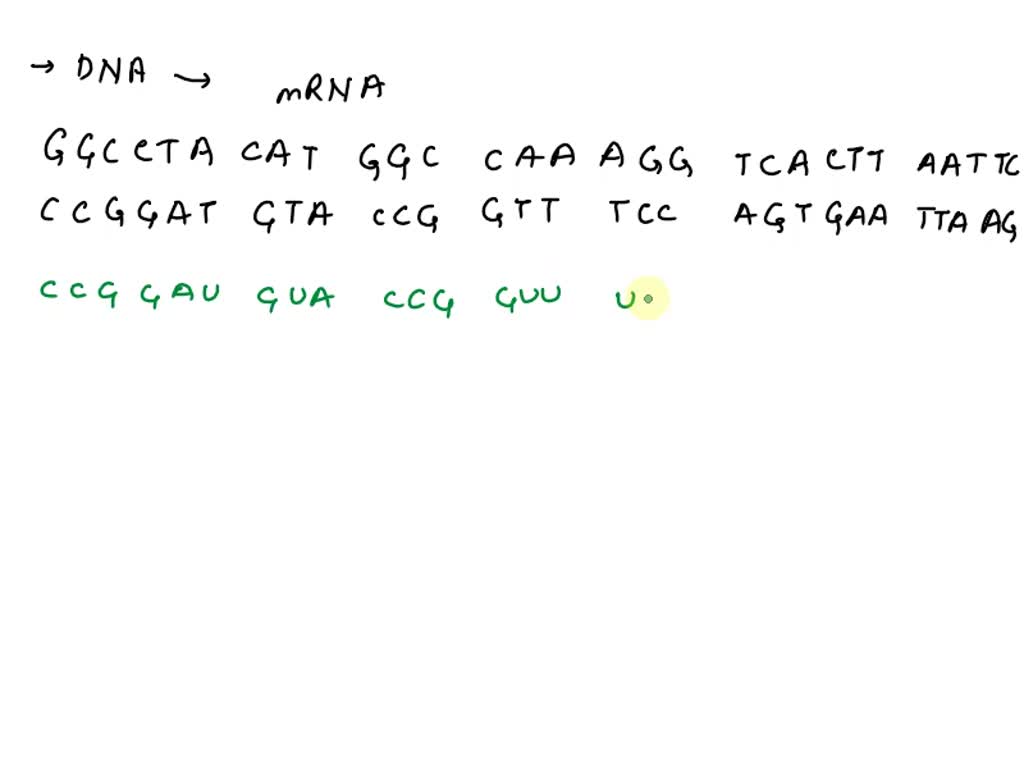 → DNA → mRNA
GGC CTA CAT GGC CAA AGG TCA CTT AATTC
CCG GAT GTA CCG GTT TCC AGT GAA TTAAG
CCG GAU GUA CCG GUU U